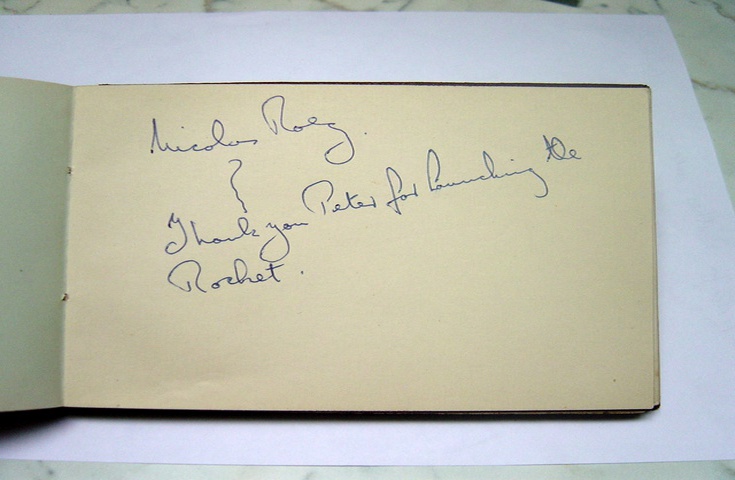 Nicolas Roeg.
Thank you Peter for launching the
Rocket.